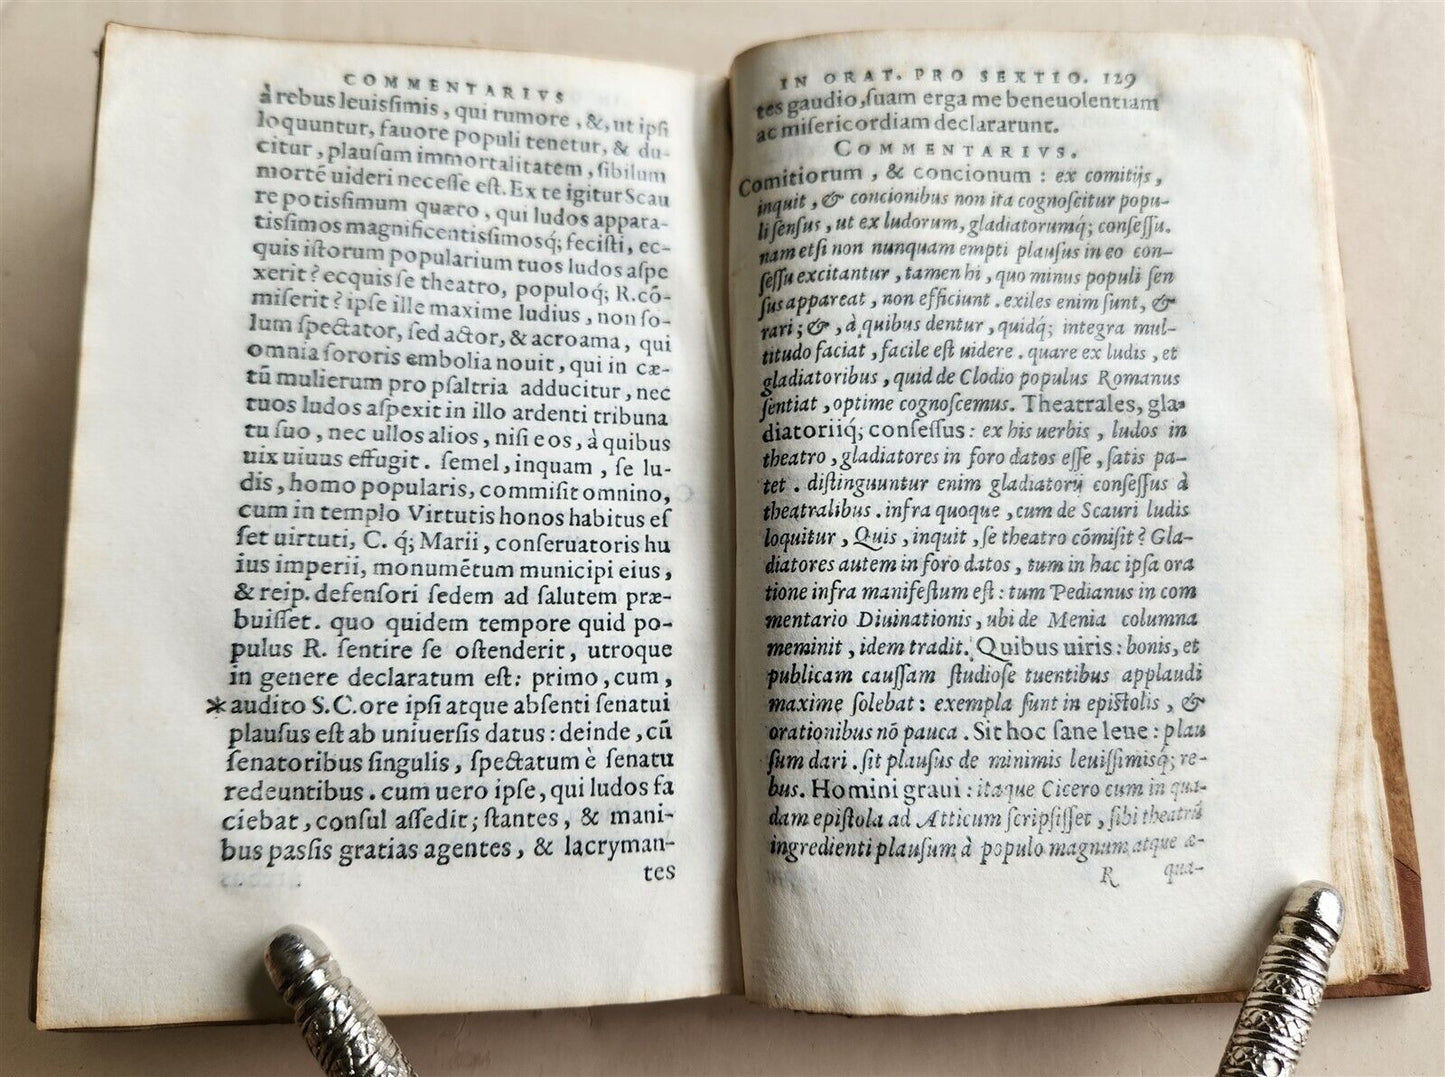 COMMENTARIVS
à rebus leuissimis, qui rumore, &, ut ipsi
loquuntur, fauore populi tenetur, & du-
citur, plausum immortalitatem, sibilum
mortẽ uideri necesse est. Ex te igitur Scau
re potissimum quæro, qui ludos appara-
tissimos magnificentissimosq́; fecisti, ec-
quis istorum popularium tuos ludos aspe
xerit? ecquis se theatro, populoq́; R. cõ-
miserit? ipse ille maxime ludius, non so-
lum spectator, sed actor, & acroama, qui
omnia sororis embolia nouit, qui in cæ-
tũ mulierum pro psaltria adducitur, nec
tuos ludos aspexit in illo ardenti tribuna
tu suo, nec ullos alios, nisi eos, à quibus
uix uiuus effugit. semel, inquam, se lu-
dis, homo popularis, commisit omnino,
cum in templo Virtutis honos habitus es
set uirtuti, C. q́; Marii, conseruatoris hu
ius imperii, monumẽtum municipi eius,
& reip. defensori sedem ad salutem præ-
buisset. quo quidem tempore quid po-
pulus R. sentire se ostenderit, utroque
in genere declaratum est: primo, cum,
*audito S.C. ore ipsi atque absenti senatui
plausus est ab uniuersis datus: deinde, cũ
senatoribus singulis, spectatum è senatu
redeuntibus. cum uero ipse, qui ludos fa
ciebat, consul assedit; stantes, & mani-
bus passis gratias agentes, & lacryman-
tes
IN ORAT. PRO SEXTIO. 129
tes gaudio, suam erga me beneuolentiam
ac misericordiam declararunt.
COMMENTARIVS.
Comitiorum, & concionum: ex comitijs,
inquit, & concionibus non ita cognoscitur popu-
li sensus, ut ex ludorum, gladiatorumq́; consessu.
nam etsi non nunquam empti plausus in eo con-
sessu excitantur, tamen hi, quo minus populi sen
sus appareat, non efficiunt. exiles enim sunt, &
rari; &, à quibus dentur, quidq́; integra mul-
titudo faciat, facile est uidere. quare ex ludis, et
gladiatoribus, quid de Clodio populus Romanus
sentiat, optime cognoscemus. Theatrales, gla-
diatoriiq́; consessus: ex his uerbis, ludos in
theatro, gladiatores in foro datos esse, satis pa-
tet. distinguuntur enim gladiatorij consessus à
theatralibus. infra quoque, cum de Scauri ludis
loquitur, Quis, inquit, se theatro cõmisit? Gla-
diatores autem in foro datos, tum in hac ipsa ora
tione infra manifestum est: tum Pedianus in com
mentario Diuinationis, ubi de Menia columna
meminit, idem tradit. Quibus uiris: bonis, et
publicam caussam studiose tuentibus applaudi
maxime solebat: exempla sunt in epistolis, &
orationibus nõ pauca. Sit hoc sane leue: plau
sum dari. sit plausus de minimis leuissimisq́; re-
bus. Homini graui: itaque Cicero cum in qua-
dam epistola ad Atticum scripsisset, sibi theatrũ
ingredienti plausum à populo magnum atque æ-
R qua-